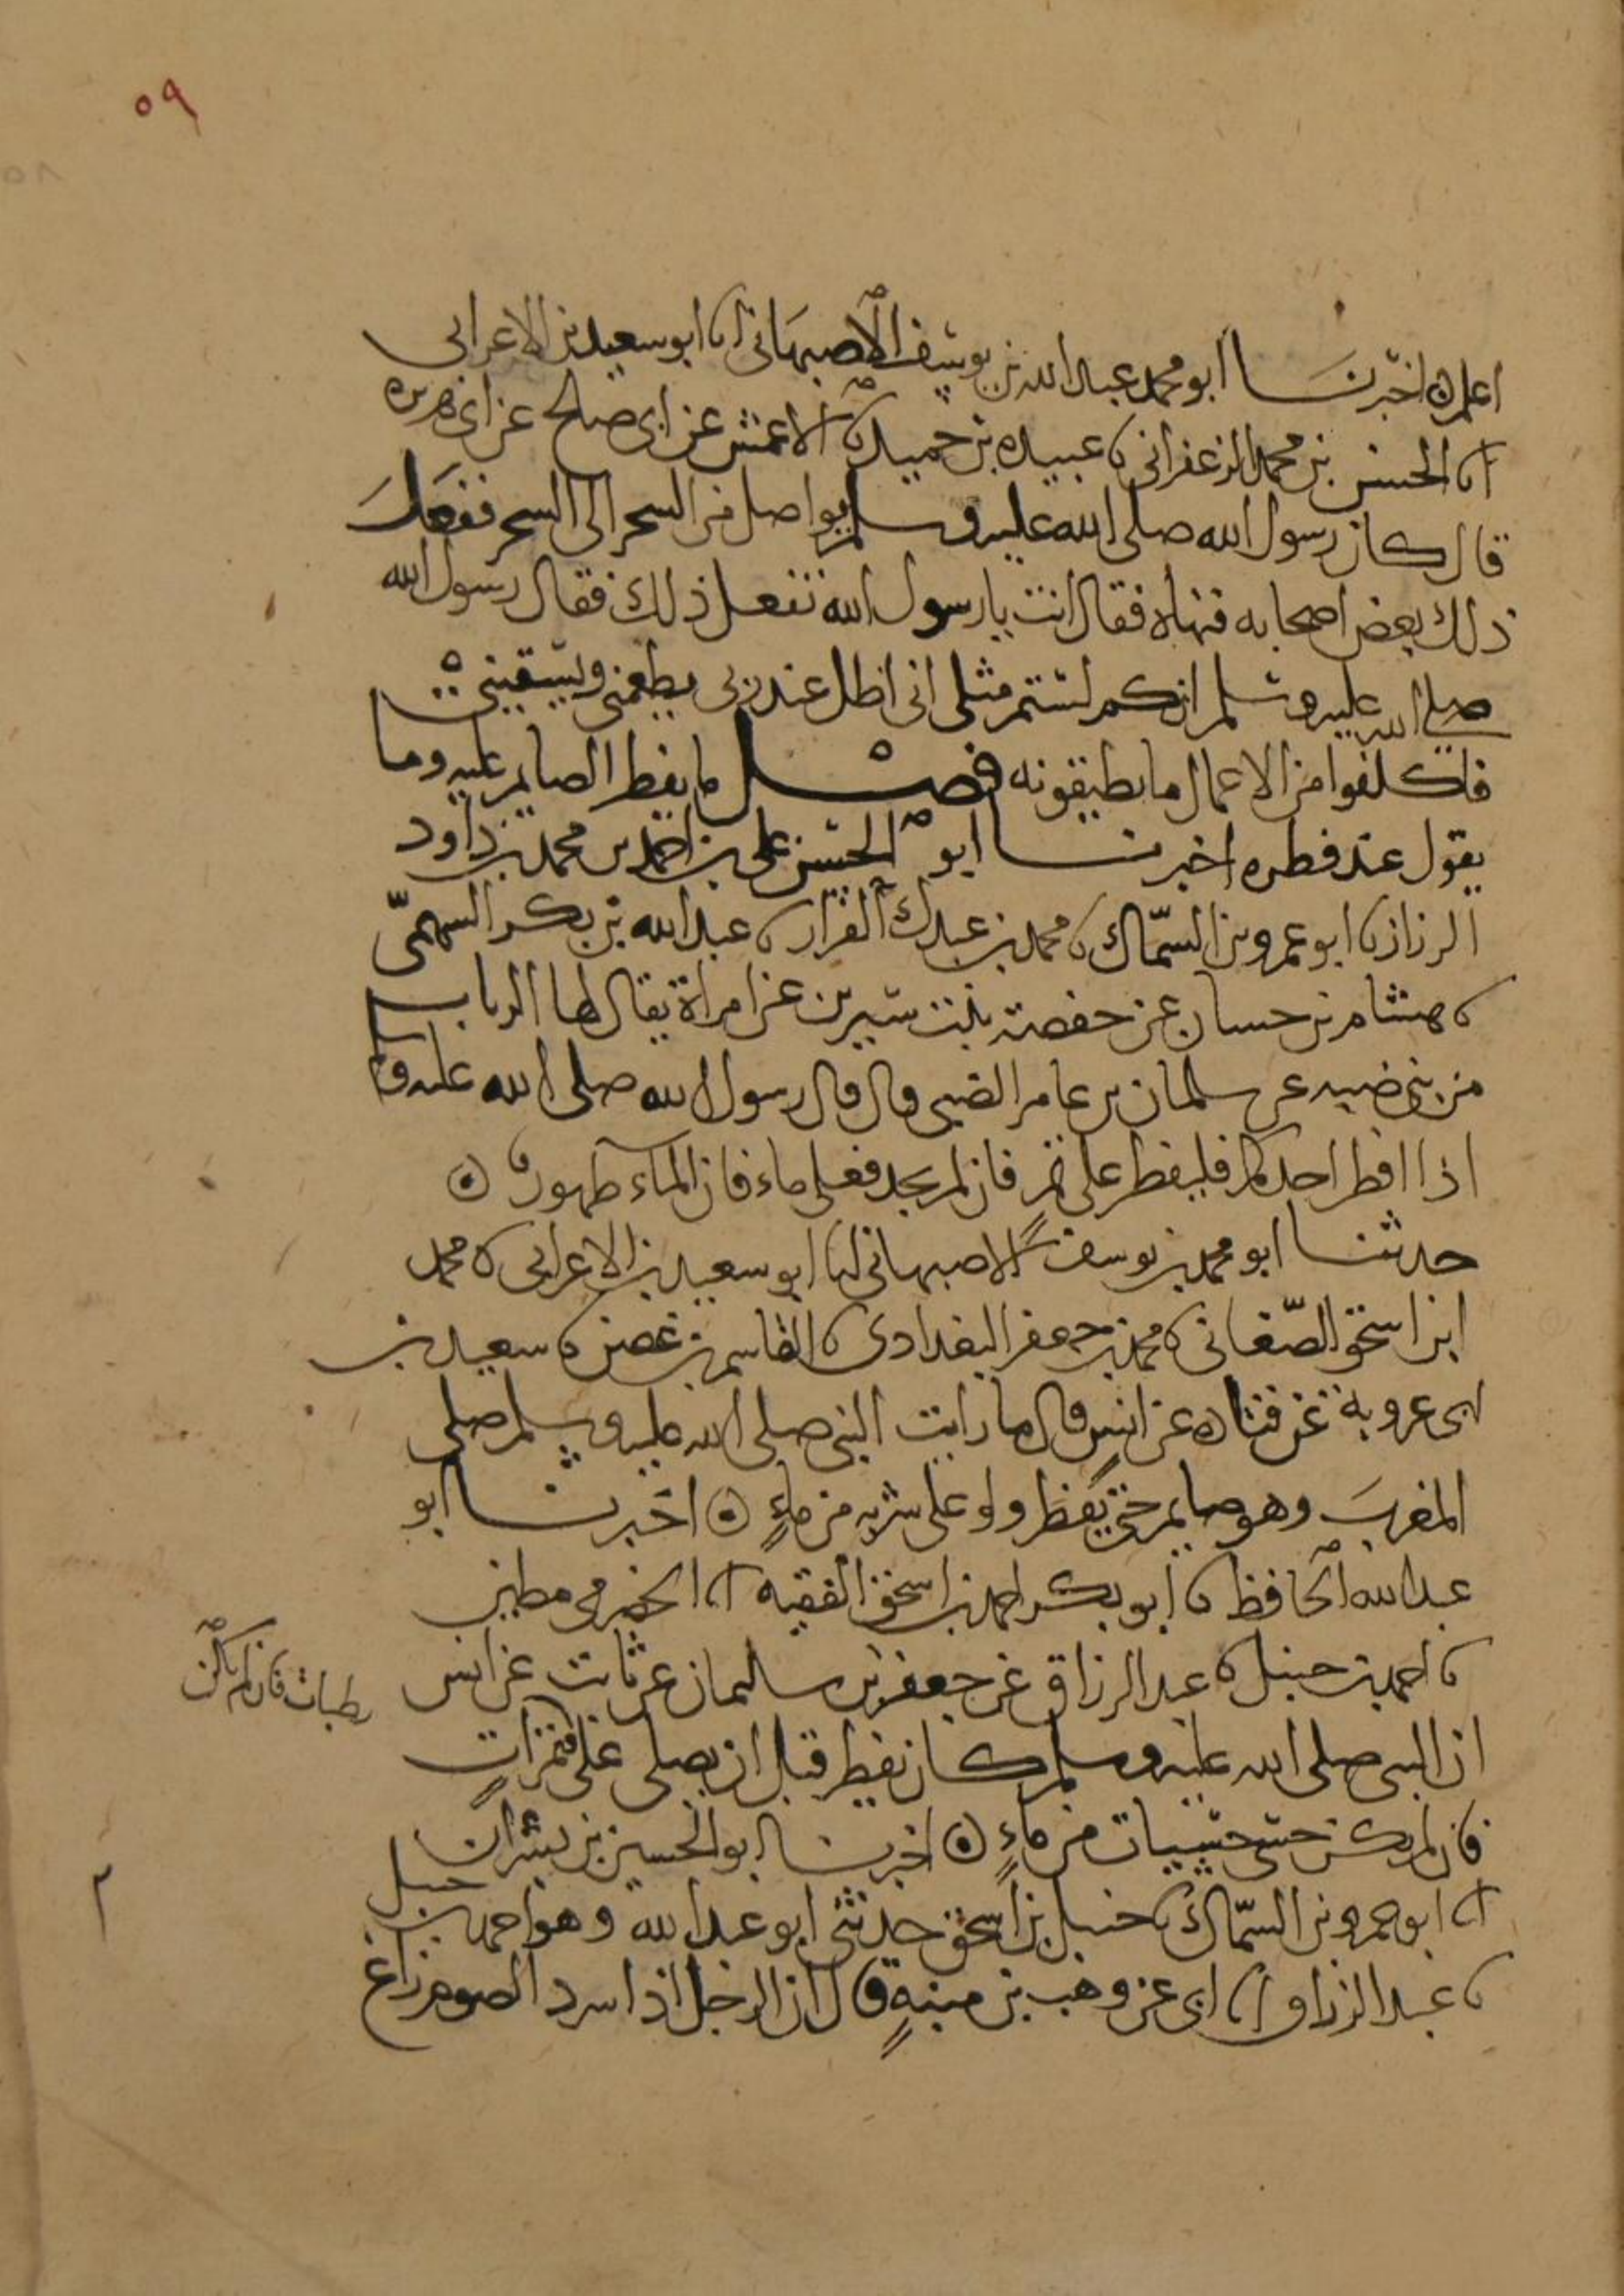 ٥٩
٥٨
اعلم ٥ اخبرنا ابو محمد عبد الله بن يوسف الاصبهاني انا ابو سعيد بن الاعرابي
انا الحسن بن محمد الزعفراني نا عبيدة بن حميد نا الاعمش عن ابي صالح عن ابي هريرة
قال كان رسول الله صلى الله عليه وسلم يواصل من السحر الى السحر ففعل
ذلك بعض اصحابه فنهاه فقال انت يا رسول الله تفعل ذلك فقال رسول الله
صلى الله عليه وسلم انكم لستم مثلي اني اظل عند ربي يطعمني ويسقيني
فاكلفوا من الاعمال ما تطيقونه فصل ما يفطر الصايم عليه وما
يقول عند فطره اخبرنا ابو الحسن علي بن احمد بن محمد بن داود
الرزاز نا ابو عمرو بن السمّاك نا محمد بن عبدك القزاز نا عبد الله بن بكر السهميّ
نا هشام بن حسان عن حفصة بنت سيرين عن امراة يقال لها الرباب
من بني ضبيه عن سلمان بن عامر الضبي قال قال رسول الله صلى الله عليه و
اذا افطر احدكم فليفطر على تمرٍ فان لم يجد فعلى ماء فان الماء طهور ٥
حدثنا ابو محمد بن يوسف الاصبهاني انا ابو سعيد بن الاعرابي نا محمد
ابن اسحق الصّغاني نا محمد بن جعفر البغدادي نا القاسم بن غصن نا سعيد بن
ابي عروبة عن قتاده عن انسٍ قال ما رايت النبي صلى الله عليه وسلم صلى
المغربَ وهو صايم حتى يفطر ولو على شربه من ماءٍ ٥ اخبرنا ابو
عبد الله الحافظ نا ابو بكر احمد بن اسحق الفقيه انا الحضرمي مطين
نا احمد بن حنبل نا عبد الرزاق عن جعفر بن سليمان عن ثابت عن انس
رطبات فان لم يكن
ان النبي صلى الله عليه وسلم كان يفطر قبل ان يصلي على فتمراتٍ
فان لم يكن حسى حسيات من ماءٍ ٥ اخبرنا ابو الحسين بن بشران
انا ابو عمرو بن السمّاك نا حنبل بن اسحق حدثني ابو عبد الله وهو احمد بن حنبل
نا عبد الرزاق انا ابي عن وهب بن منبهٍ قال ان الرجل اذا سرد الصوم زاغ